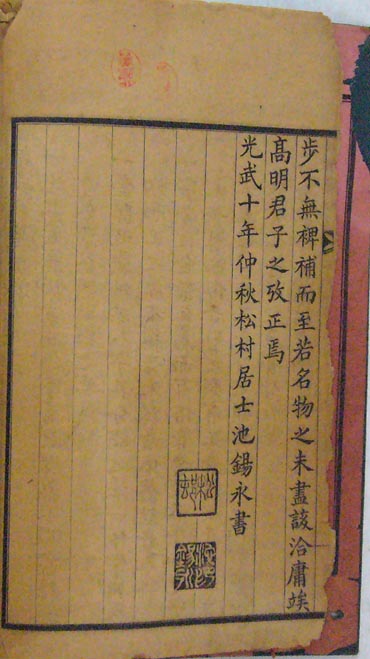 步不無裨補而至若名物之未盡該洽庸竢
高明君子之攷正焉
光武十年仲秋松村居士池錫永書
松村